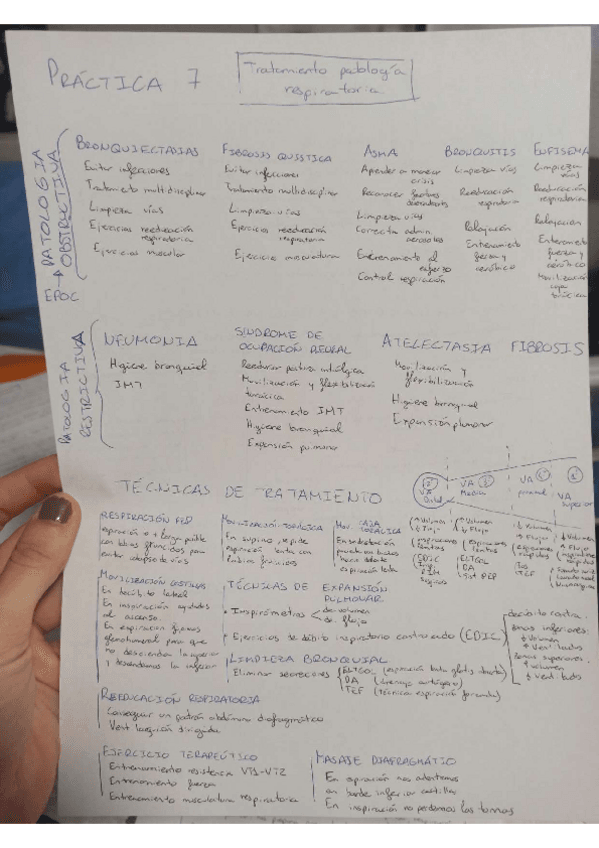 PRÁCTICA 7
Tratamiento patología
respiratoria
PATOLOGIA
OBSTRUCTIVA
EPOC
BRONQUIECTASIAS
Evitar infecciones
Tratamiento multidisciplinar
Limpieza vías
Ejercicios reeducación
respiratoria
Ejercicio muscular
FIBROSIS QUÍSTICA
Evitar infecciones
Tratamiento multidisciplinar
Limpieza vías
Ejercicios reeducación
respiratoria
Ejercicio musculatura
ASMA
Aprender a manejar
crisis
Reconocer factores
Limpieza vías
Correcta admin.
aerosoles
Entrenamiento al
esfuerzo
Control respiración
BRONQUITIS
Limpieza vías
Reeducación
respiratoria
Relajación
Entrenamiento
fuerza y
aeróbico
ENFISEMA
Limpieza
vías
Reeducación
respiratoria
Relajación
Entrenamiento
fuerza y
aeróbico
Movilización
caja
torácica
PATOLOGIA
RESTRICTIVA
NEUMONIA
Higiene bronquial
IMT
SINDROME DE
OCUPACIÓN PLEURAL
Reeducar postura antálgica
Movilización y flexibilización
torácica
Entrenamiento IMT
Higiene bronquial
Expansión pulmonar
ATELECTASIA FIBROSIS
Movilización y
flexibilización
Higiene bronquial
Expansión pulmonar
TÉCNICAS DE TRATAMIENTO
VA
Media
VA
proximal
VA
superior
RESPIRACIÓN FLP
espiración o + larga posible
con labios fruncidos para
evitar colapso de vías
MOVILIZACIÓN TORÁCICA
En supino, se pide
espiración lenta con
labios fruncidos
MOV. CAJA
TORÁCICA
espiración lenta
MOVILIZACIÓN COSTILLAS
En decúbito lateral
En inspiración ayudamos
al ascenso.
En espiración fijamos
glenohumeral para que
no descienda la superior
y descendamos la inferior
TÉCNICAS DE EXPANSIÓN
PULMONAR
• Inspirómetros de volumen
de flujo
• Ejercicios de débito inspiratorio controlado (EDIC)
decúbito contra.
zonas inferiores:
↑ volumen
zonas superiores:
↑ volumen
LIMPIEZA BRONQUIAL
Eliminar secreciones ELTGOL (espiración lenta glotis abierta)
DA (drenaje autógeno)
TEF (técnica espiración forzada)
REEDUCACIÓN RESPIRATORIA
Conseguir un patrón abdomino diafragmático
Ventilación dirigida
EJERCICIO TERAPÉUTICO
Entrenamiento resistencia VT1-VT2
Entrenamiento fuerza
Entrenamiento musculatura respiratoria
MASAJE DIAFRAGMÁTICO
En espiración nos adentramos
en borde inferior costillas
En inspiración no perdemos las tomas